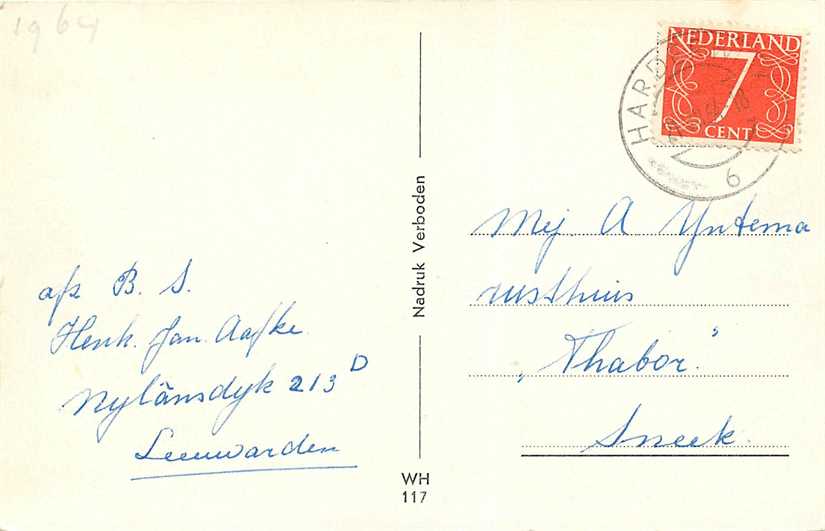 1964
NEDERLAND
7
CENT
HARD
6
Mej A Yntema
rusthuis
"Thabor."
Sneek.
afz B. S.
Henk. Jan. Aafke.
Nylânsdyk 213 D
Leeuwarden
Nadruk Verboden
WH
117